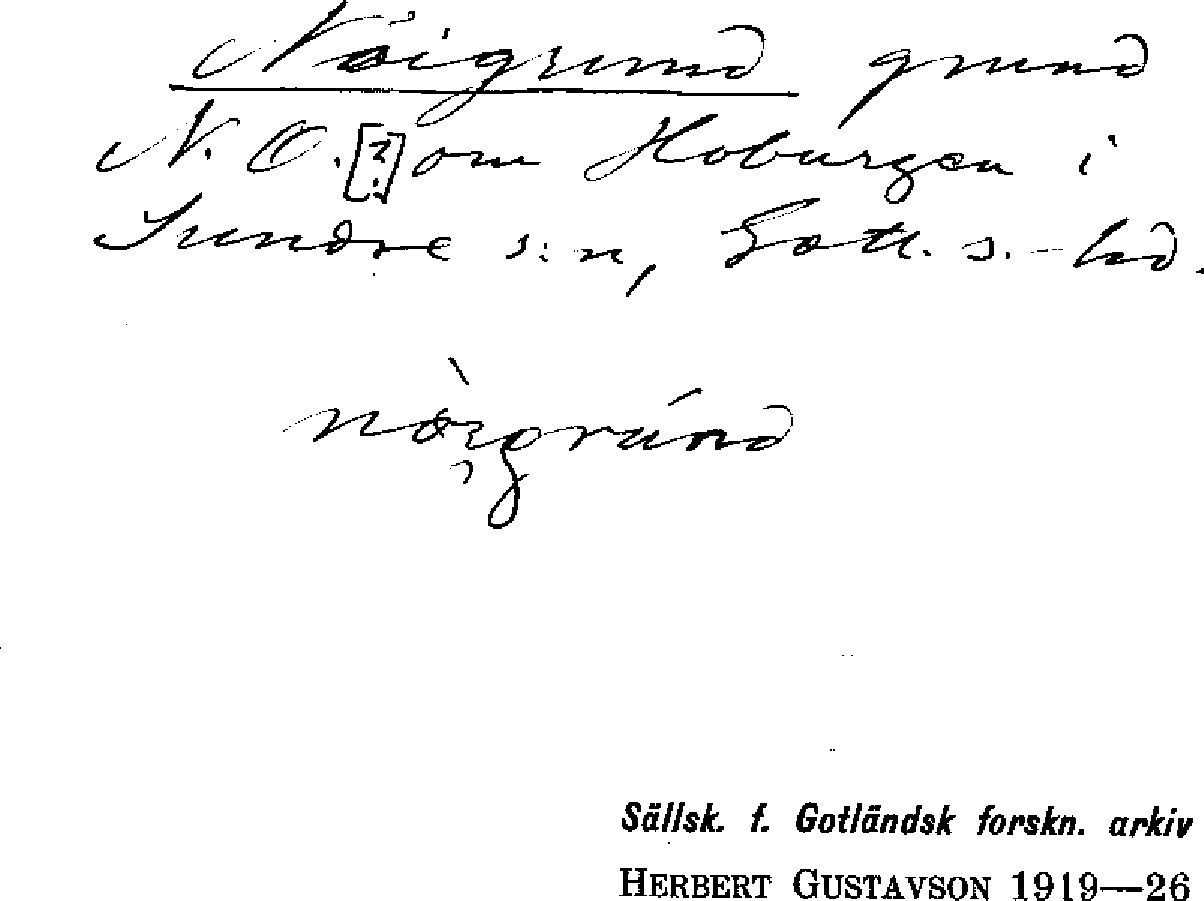 Nöigrund grund
N. O. [?] om Hoburgen i
Sundre s:n, Gotl. s.-hd.
Sällsk. f. Gotländsk forskn. arkiv
HERBERT GUSTAVSON 1919—26